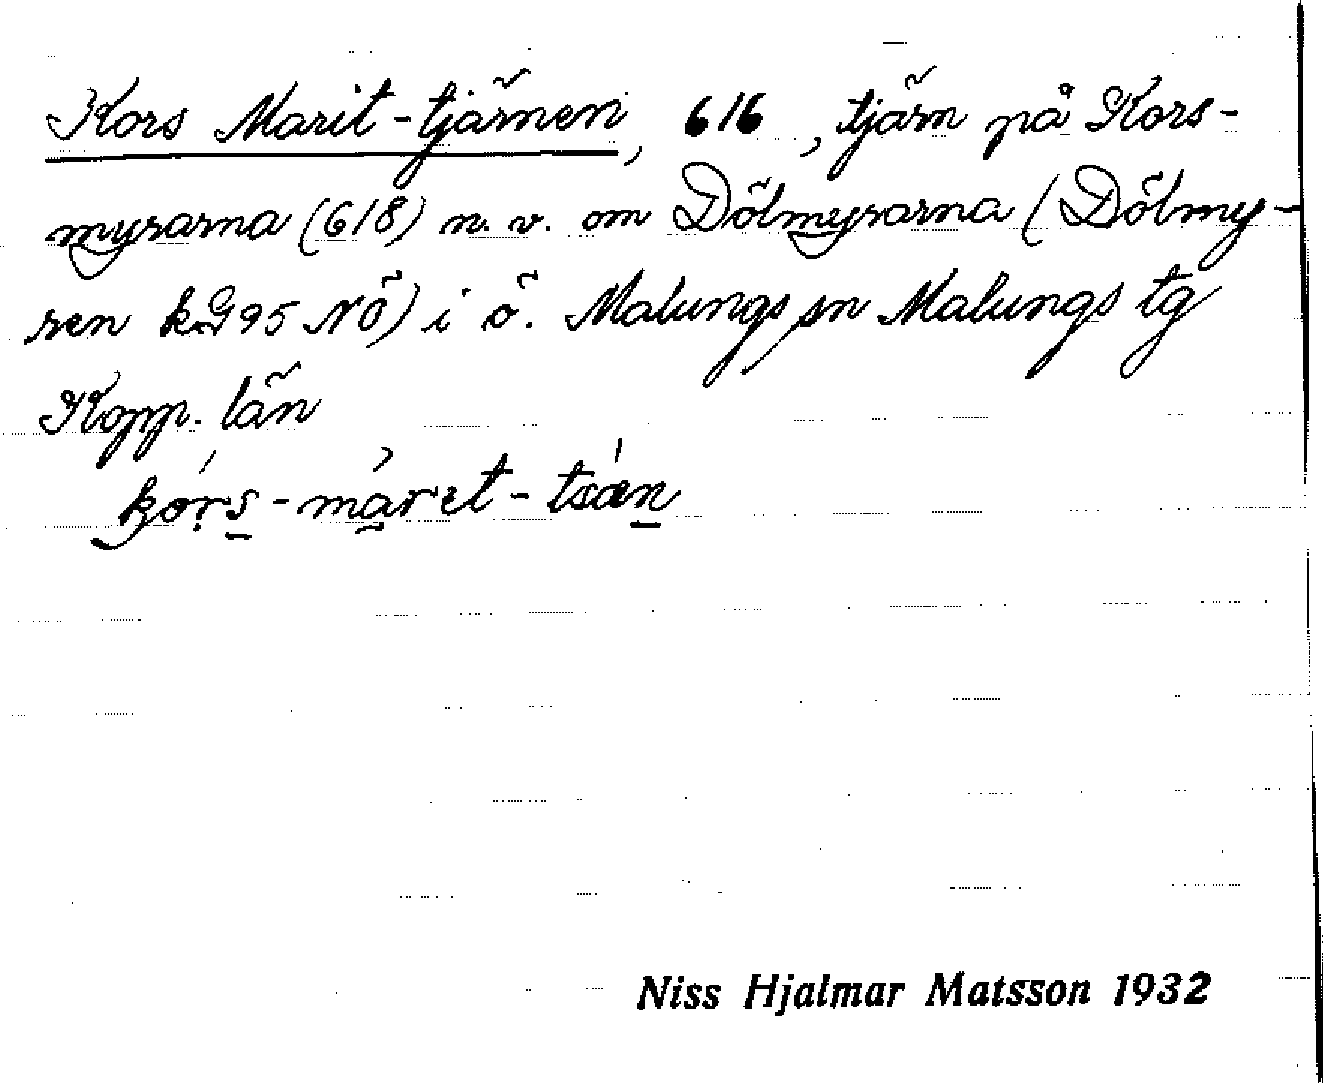 Kors Marit-tjärnen, 616, tjärn på Kors-
myrarna (618) n. v. om Dölmyrarna (Dölmy-
ren k.G95 NÖ) i ö. Malungs sn Malungs tg
Kopp. län
kórs-màret-tsán
Niss Hjalmar Matsson 1932